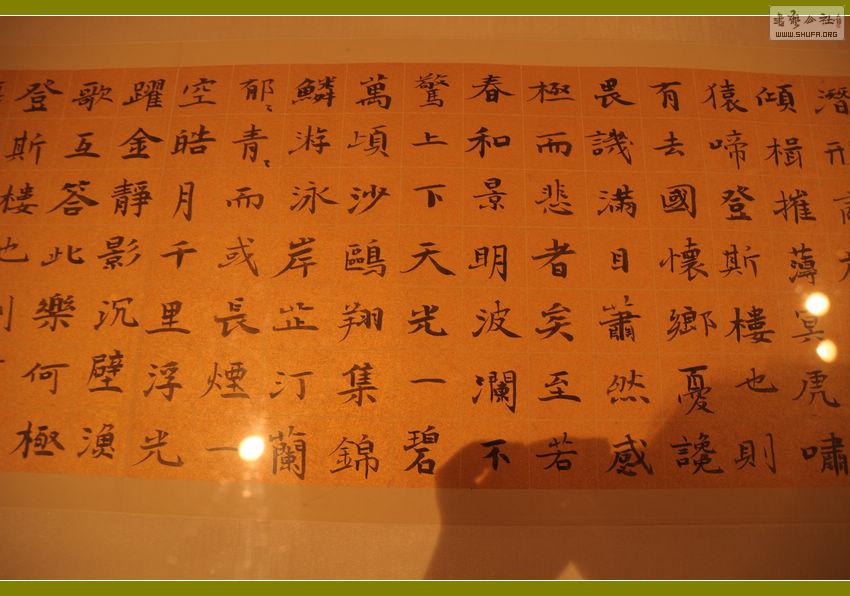 潛
傾楫摧薄冥虎嘯
猿啼登斯樓也則
有去國懷鄉憂讒
畏譏滿目蕭然感
極而悲者矣至若
春和景明波瀾不
驚上下天光一碧
萬頃沙鷗翔集錦
鱗游泳岸芷汀蘭
郁〻青〻而或長煙一
空皓月千里浮光
躍金靜影沉璧漁
歌互答此樂何極
登斯樓也
書法公社
WWW.SHUFA.ORG